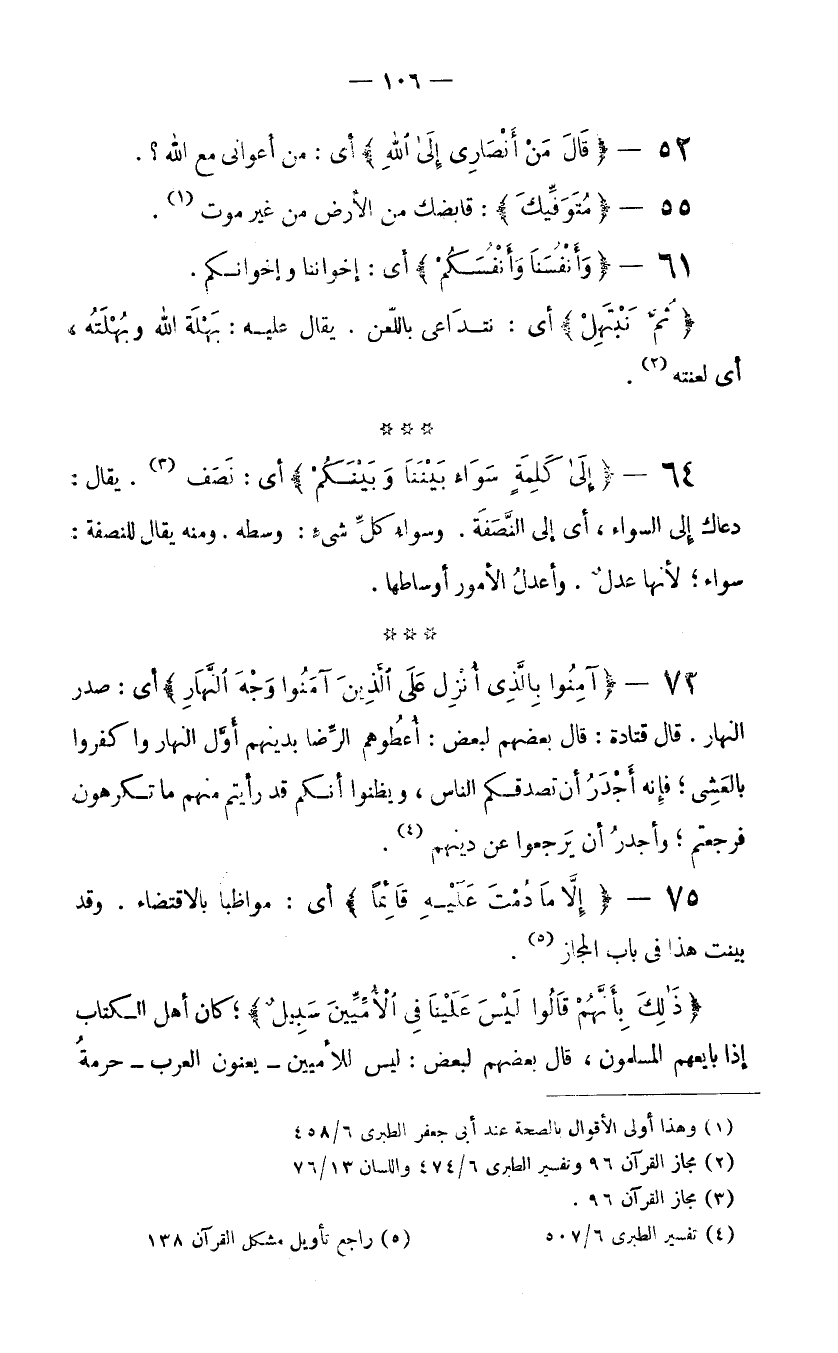 — ١٠٦ —
٥٢ — ﴿ قَالَ مَنْ أَنْصَارِى إِلَىٰ ٱللهِ ﴾ أى : من أعوانى مع الله ؟ .
٥٥ — ﴿ مُتَوَفِّيكَ ﴾ : قابضك من الأرض من غير موت (١) .
٦١ — ﴿ وَأَنْفُسَنَا وَأَنْفُسَكُمْ ﴾ أى : إخواننا وإخوانكم .
﴿ ثُمَّ نَبْتَهِلْ ﴾ أى : نتدَاعى باللّعن . يقال عليه : بَهْلَة الله وبُهْلَتُه ،
أى لعنته (٢) .
* * *
٦٤ — ﴿ إِلَىٰ كَلِمَةٍ سَوَاء بَيْنَنَا وَبَيْنَكُمْ ﴾ أى : نَصَف (٣) . يقال :
دعاك إلى السواء ، أى إلى النَّصَفَة . وسواءِ كلِّ شىءٍ : وسطه . ومنه يقال للنصفة :
سواء ؛ لأنها عدلٌ . وأعدلُ الأمور أوساطها .
* * *
٧٢ — ﴿ آمِنُوا بِالَّذِى أُنْزِل عَلَى ٱلَّذِينَ آمَنُوا وَجْهَ ٱلنَّهَارِ ﴾ أى : صدر
النهار . قال قتادة : قال بعضهم لبعض : أعْطُوهم الرِّضا بدينهم أوَّل النهار واكفروا
بالعَشِى ؛ فإنه أَجْدَرُ أن تصدقكم الناس ، ويظنوا أنكم قد رأيتم منهم ما تكرهون
فرجعتم ؛ وأجدرُ أن يَرجعوا عن دينهم (٤) .
٧٥ — ﴿ إِلَّا مَا دُمْتَ عَلَيْهِ قَائِماً ﴾ أى : مواظبا بالاقتضاء . وقد
بينت هذا فى باب المجاز (٥) .
﴿ ذَٰلِكَ بِأَنَّهُمْ قَالُوا لَيْسَ عَلَيْنَا فِى ٱلْأُمِّيِّينَ سَبِيلٌ ﴾ ؛ كان أهل الكتاب
إذا بايعهم المسلمون ، قال بعضهم لبعض : ليس للأميين ــ يعنون العرب ــ حرمةُ
(١) وهذا أولى الأقوال بالصحة عند أبى جعفر الطبرى ٤٥٨/٦
(٢) مجاز القرآن ٩٦ وتفسير الطبرى ٤٧٤/٦ واللسان ٧٦/١٣
(٣) مجاز القرآن ٩٦ .
(٤) تفسير الطبرى ٥٠٧/٦ (٥) راجع تأويل مشكل القرآن ١٣٨